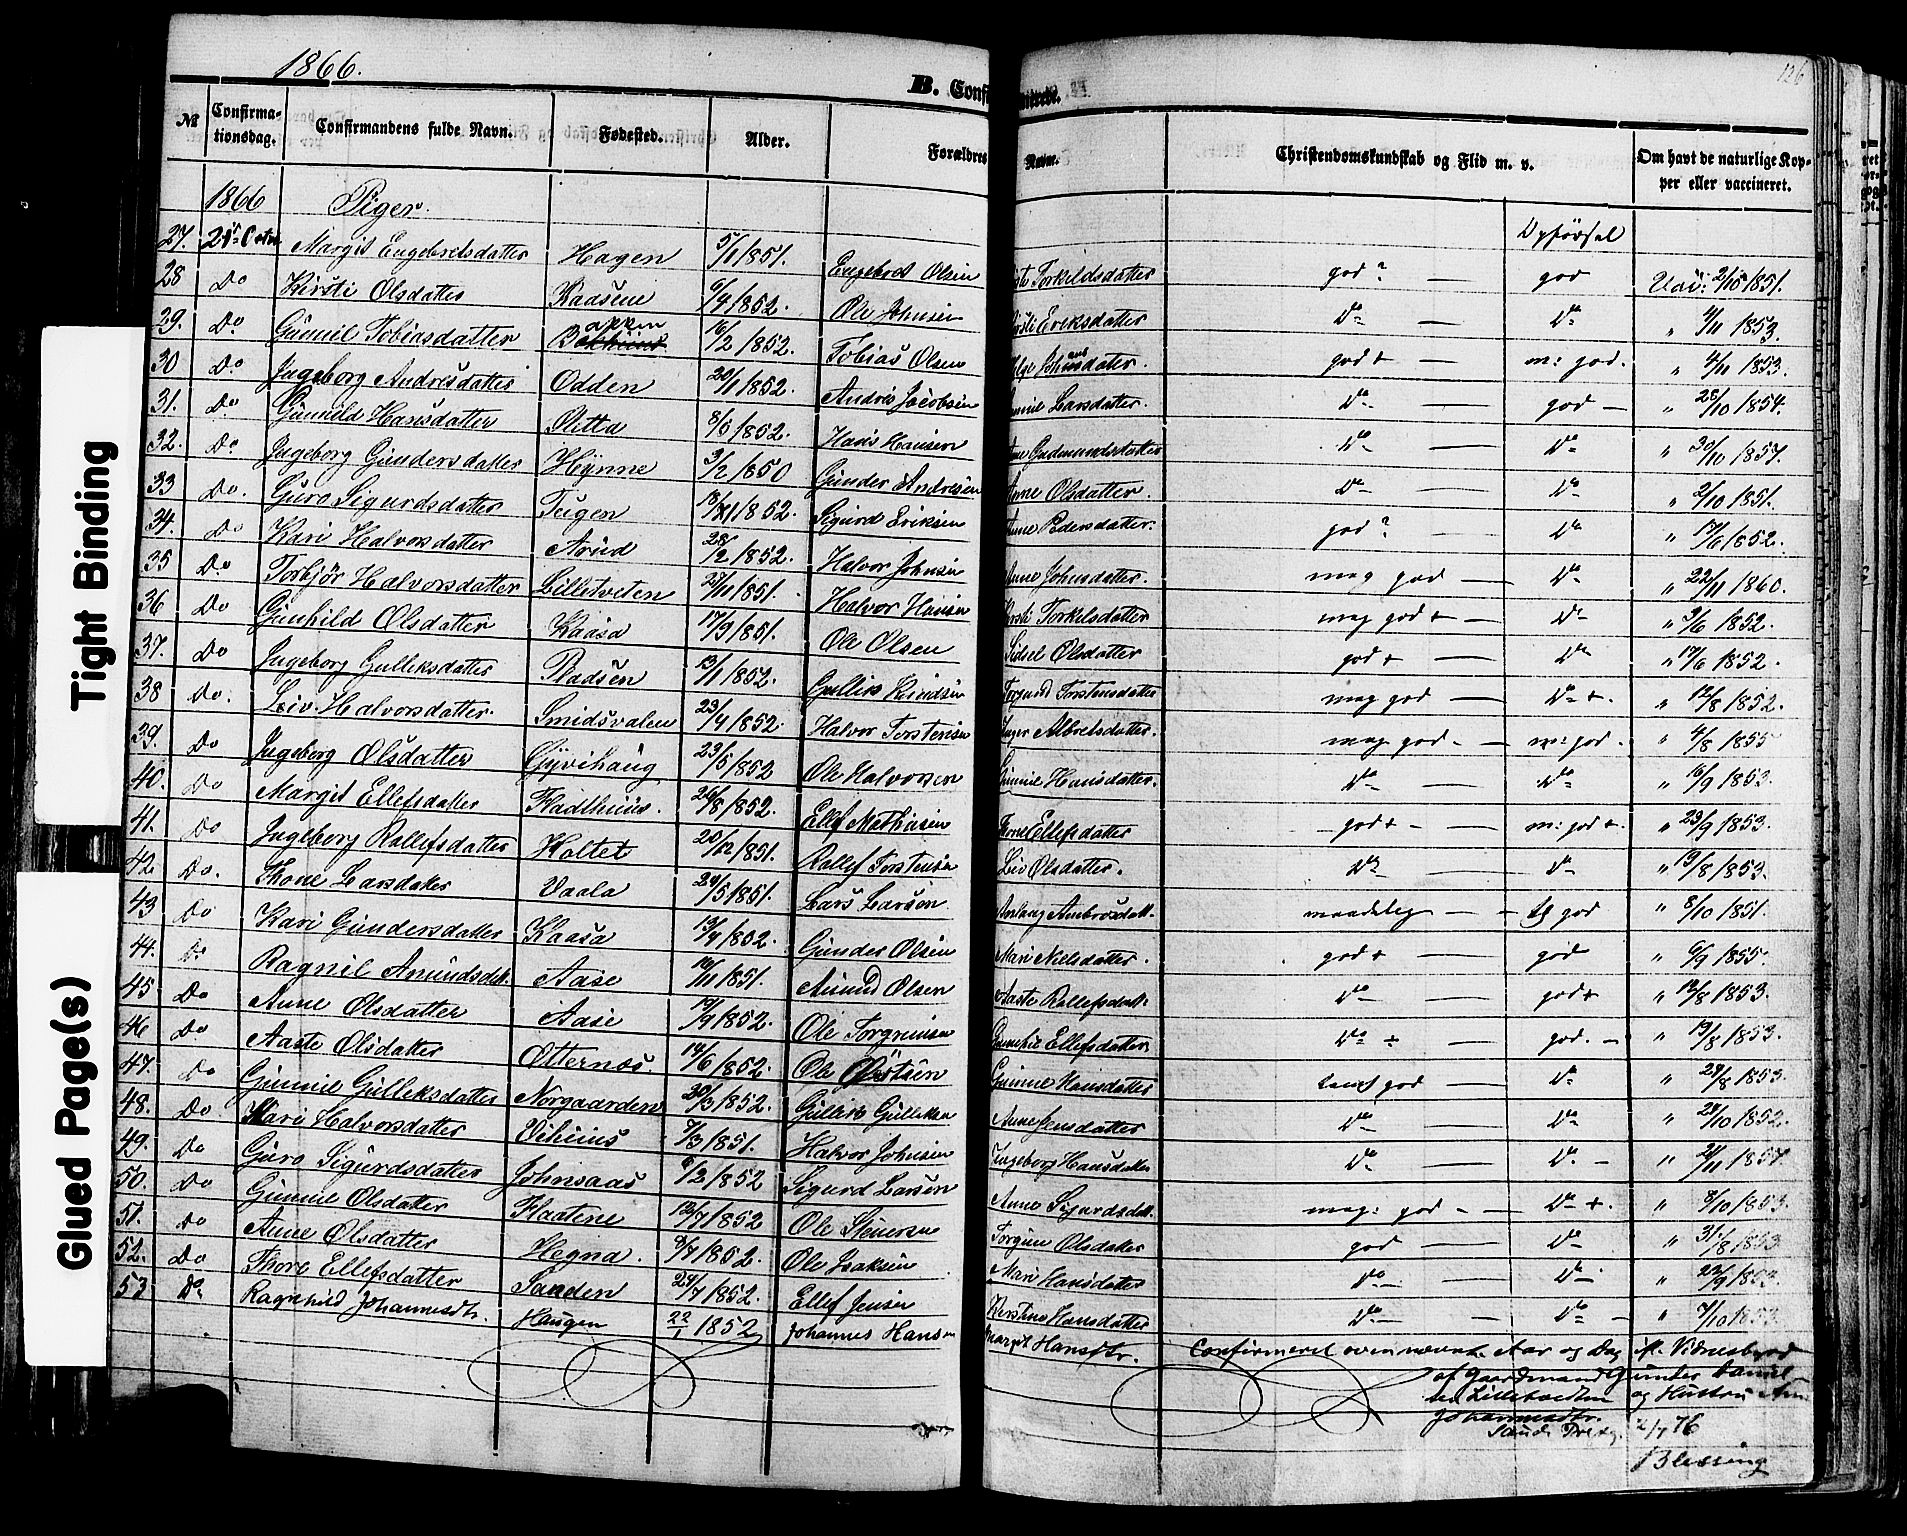 1866.
126
B. Confirmerede.
№ Confirmationsdag. Confirmandens fulde Navn. Fødested. Alder. Forældres Navn. Christendomskundskab og Flid m. v. Om havt de naturlige Kopper eller vaccineret.
1866 Piger. Opførsel
27. Margit Engebretsdatter Hagen 5/1 1851. Engebret Olsen Torkildsdatter god? — god 1851.
28 Do Kirsti Olsdatter Kaasene 6/4 1852. Ole Johnsen Eriksdatter Do — Do " 1853.
29. Do Gunnil Tobiasdatter 16/2 1852. Tobias Olsen god + — m: god. " 4/11 1853.
30 Do Ingeborg Andresdatter Odden 20/1 1852. Andres Jacobsen Larsdatter. Do — god — " 25/10 1854.
31. Do Gunnild Hansdatter Slitta 1852. Hans Hansen Gudmundsdatter Do — Do " 30/10 1857.
32. Do Ingeborg Gundersdatter Hynne 3/2 1850 Gunder Andresen Anne Olsdatter. Do — Do " 2/10 1851.
33 Do. Guro Sigurdsdatter Tugen 1852. Sigurd Eriksen Anne Pedersdatter. god? Do " 17/6 1852.
34. Do Kari Halvorsdatter Arud 28/2 1852. Halvor Johnsen Anne Johnsdatter. meg god — Do " 22/11 1860.
35 Do. Torbjør Halvorsdatter Lilletveten 1851. Halvor Hansen Kirsti Torkelsdatter meg god + — Do " 3/6 1852.
36 Do Gunhild Olsdatter Kaasa 17/9 1851. Ole Olsen Sidsel Olsdatter god + — Do " 17/6 1852.
37. Do Ingeborg Gulleksdatter 13/1 1852. Gullik Torgund Torstensdatter meg god — Do + . " 12/8 1852.
38 Do. Liv Halvorsdatter. Smidsvalen 23/4 1852. Halvor Torstensen Inger Albretsdatter. meg god. — m: god. " 4/8 1855
39. Do Ingeborg Olsdatter Gyvihaug 23/5 1852 Ole Halvorsen Gunnil Hansdatter. Do — Do " 16/9 1853.
40. Do Margit Ellefsdatter Fladthuus. 26/8 1852. Ellef Mathisen Thone Ellefsdatter god + — m: god + . " 23/9 1853.
41. Do Ingeborg Rollefsdatter Holtet 25/12 1851. Rollef Torstensen Liv Olsdatter. Do — Do " 19/8 1853.
42 Do. Thone Larsdatter Vaala 24/5 1851. Lars Larsen Aslaug Ambrosdatt. maadelig — god " 8/10 1851.
43 Do Kari Gundersdatter Kaasa 13/4 1852. Gunder Olsen Mari Nielsdatter. god + — god " 6/9 1855.
44. Do Ragnil Amundsdatt. Aase 16/11 1851. Amund Olsen Aaste Rollefsdatt. Do — god + " 12/8 1853.
45 Do Anne Olsdatter Aase 19/9 1852. Ole Torgrimsen Gunnhil Ellefsdatter Do + — god. — " 19/8 1853.
46 Do Aaste Olsdatter Otternæs. 14/6 1852. Ole Gunnil Hansdatter god — Do " 29/8 1853.
47. Do Gunnil Gulleksdatter Norgaarden 20/3 1852. Gullik Gulleksen Anne Jensdatter Do — Do " 24/10 1852.
48. Do Kari Halvorsdatter 7/3 1851. Halvor Johnsen Ingeborg Hansdatter Do — Do. — " 24/11 1857.
49. Do Guro Sigurdsdatter Johnsaas 1852 Sigurd Larsen Anne Sigurdsdatt. meg: god — Do + . " 8/10 1853.
50. Do Gunnil Olsdatter Flaatene 12/7 1852 Ole Torgun Olsdatter god — Do " 31/8 1853
51. Do Anne Olsdatter Hegna. 9/7 1852. Ole Isaksen Mari Hansdatter Do — Do — " 22/9 1853.
52. Do Thore Ellefsdatter Sanden 24/7 1852. Ellef Jensen Kirstine Hansdatter Do — Do " 7/10 1853.
53 Do Ragnhild Johannesdtr. Haugen 22/1 1852 Johannes Hansen Margit Hansdtr. Confirmeret ovennævnte Aar og Dag. Vidnesbyrd
af Gaardmand Gunder
og Hustru
Johannesdtr.
2/7 76
Blessing
Tight Binding
Glued Page(s)